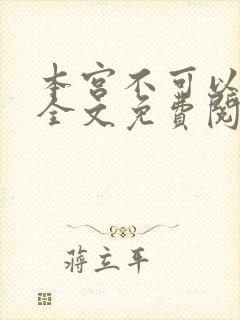 本宫不可以
全文免费阅
蒋立平